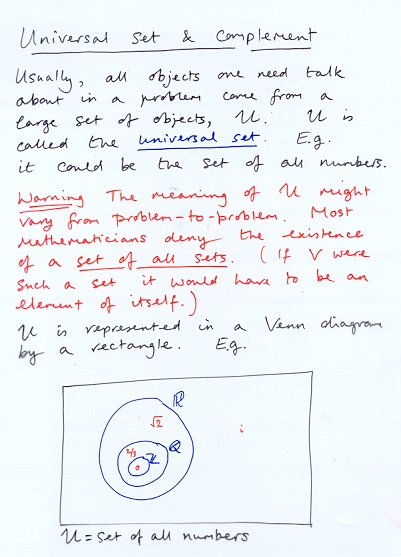 Universal Set & Complement
Usually, all objects one need talk
about in a problem come from a
large set of objects, U. U is
called the universal set. E.g.
it could be the set of all numbers.
Warning The meaning of U might
vary from problem-to-problem. Most
mathematicians deny the existence
of a set of all sets. (If V were
such a set it would have to be an
element of itself.)
U is represented in a Venn diagram
by a rectangle. E.g.
ℝ
√2
i
ℚ
2/3
ℤ
0
U = set of all numbers